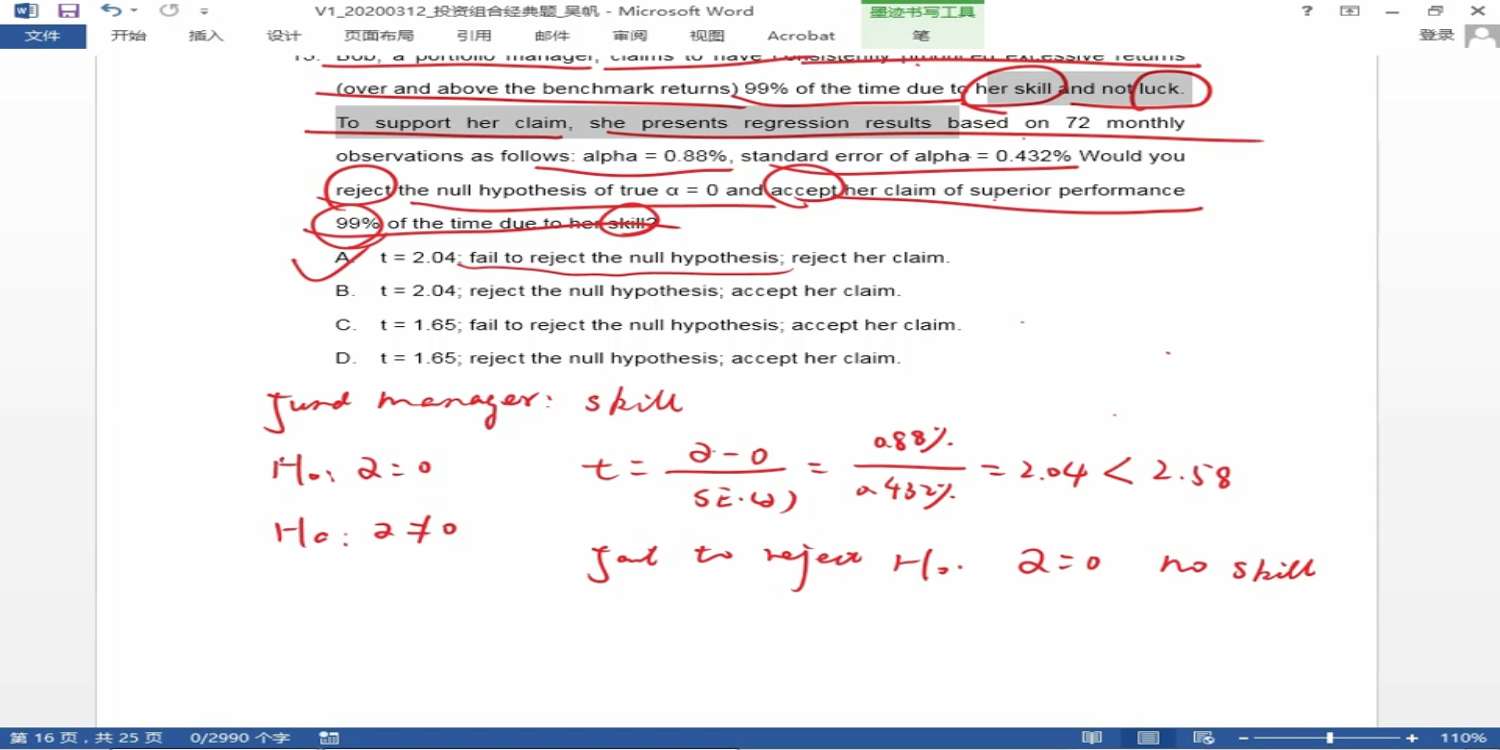 V1_20200312_投资组合经典题_吴帆 - Microsoft Word
墨迹书写工具
文件 开始 插入 设计 页面布局 引用 邮件 审阅 视图 Acrobat 笔 登录
13. Bob, a portfolio manager, claims to have consistently produced excessive returns
(over and above the benchmark returns) 99% of the time due to her skill and not luck.
To support her claim, she presents regression results based on 72 monthly
observations as follows: alpha = 0.88%, standard error of alpha = 0.432% Would you
reject the null hypothesis of true α = 0 and accept her claim of superior performance
99% of the time due to her skill?
A. t = 2.04; fail to reject the null hypothesis; reject her claim.
B. t = 2.04; reject the null hypothesis; accept her claim.
C. t = 1.65; fail to reject the null hypothesis; accept her claim.
D. t = 1.65; reject the null hypothesis; accept her claim.
fund manager: skill
H0: α = 0
t = α - 0 / SE(α) = 0.88% / 0.432% = 2.04 < 2.58
Ha: α ≠ 0
fail to reject H0. α = 0 no skill
第 16 页，共 25 页 0/2990 个字 110%